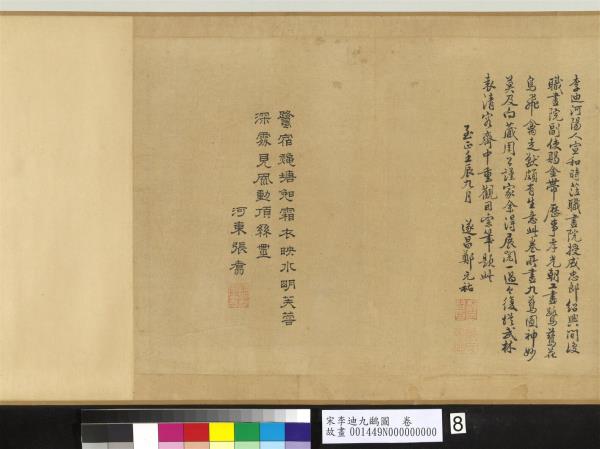 李迪河陽人宣和時蒞職畫院授成忠郎紹興間復
職畫院副使賜金帶歷事孝光朝工畫鷙花
鳥飛禽走獸頗有生意此卷所畫九鷺圖神妙
莫及向藏周公謹家余得展閱一過今復從武林
袁清容齋中重觀因索筆題此
至正壬辰九月 遂昌鄭元祐
鷺宿秋塘怨霜衣映水明芙蓉
深處見風動頂絲
河東張翥
宋李迪九鷁圖 卷
故畫 001449N000000000
8